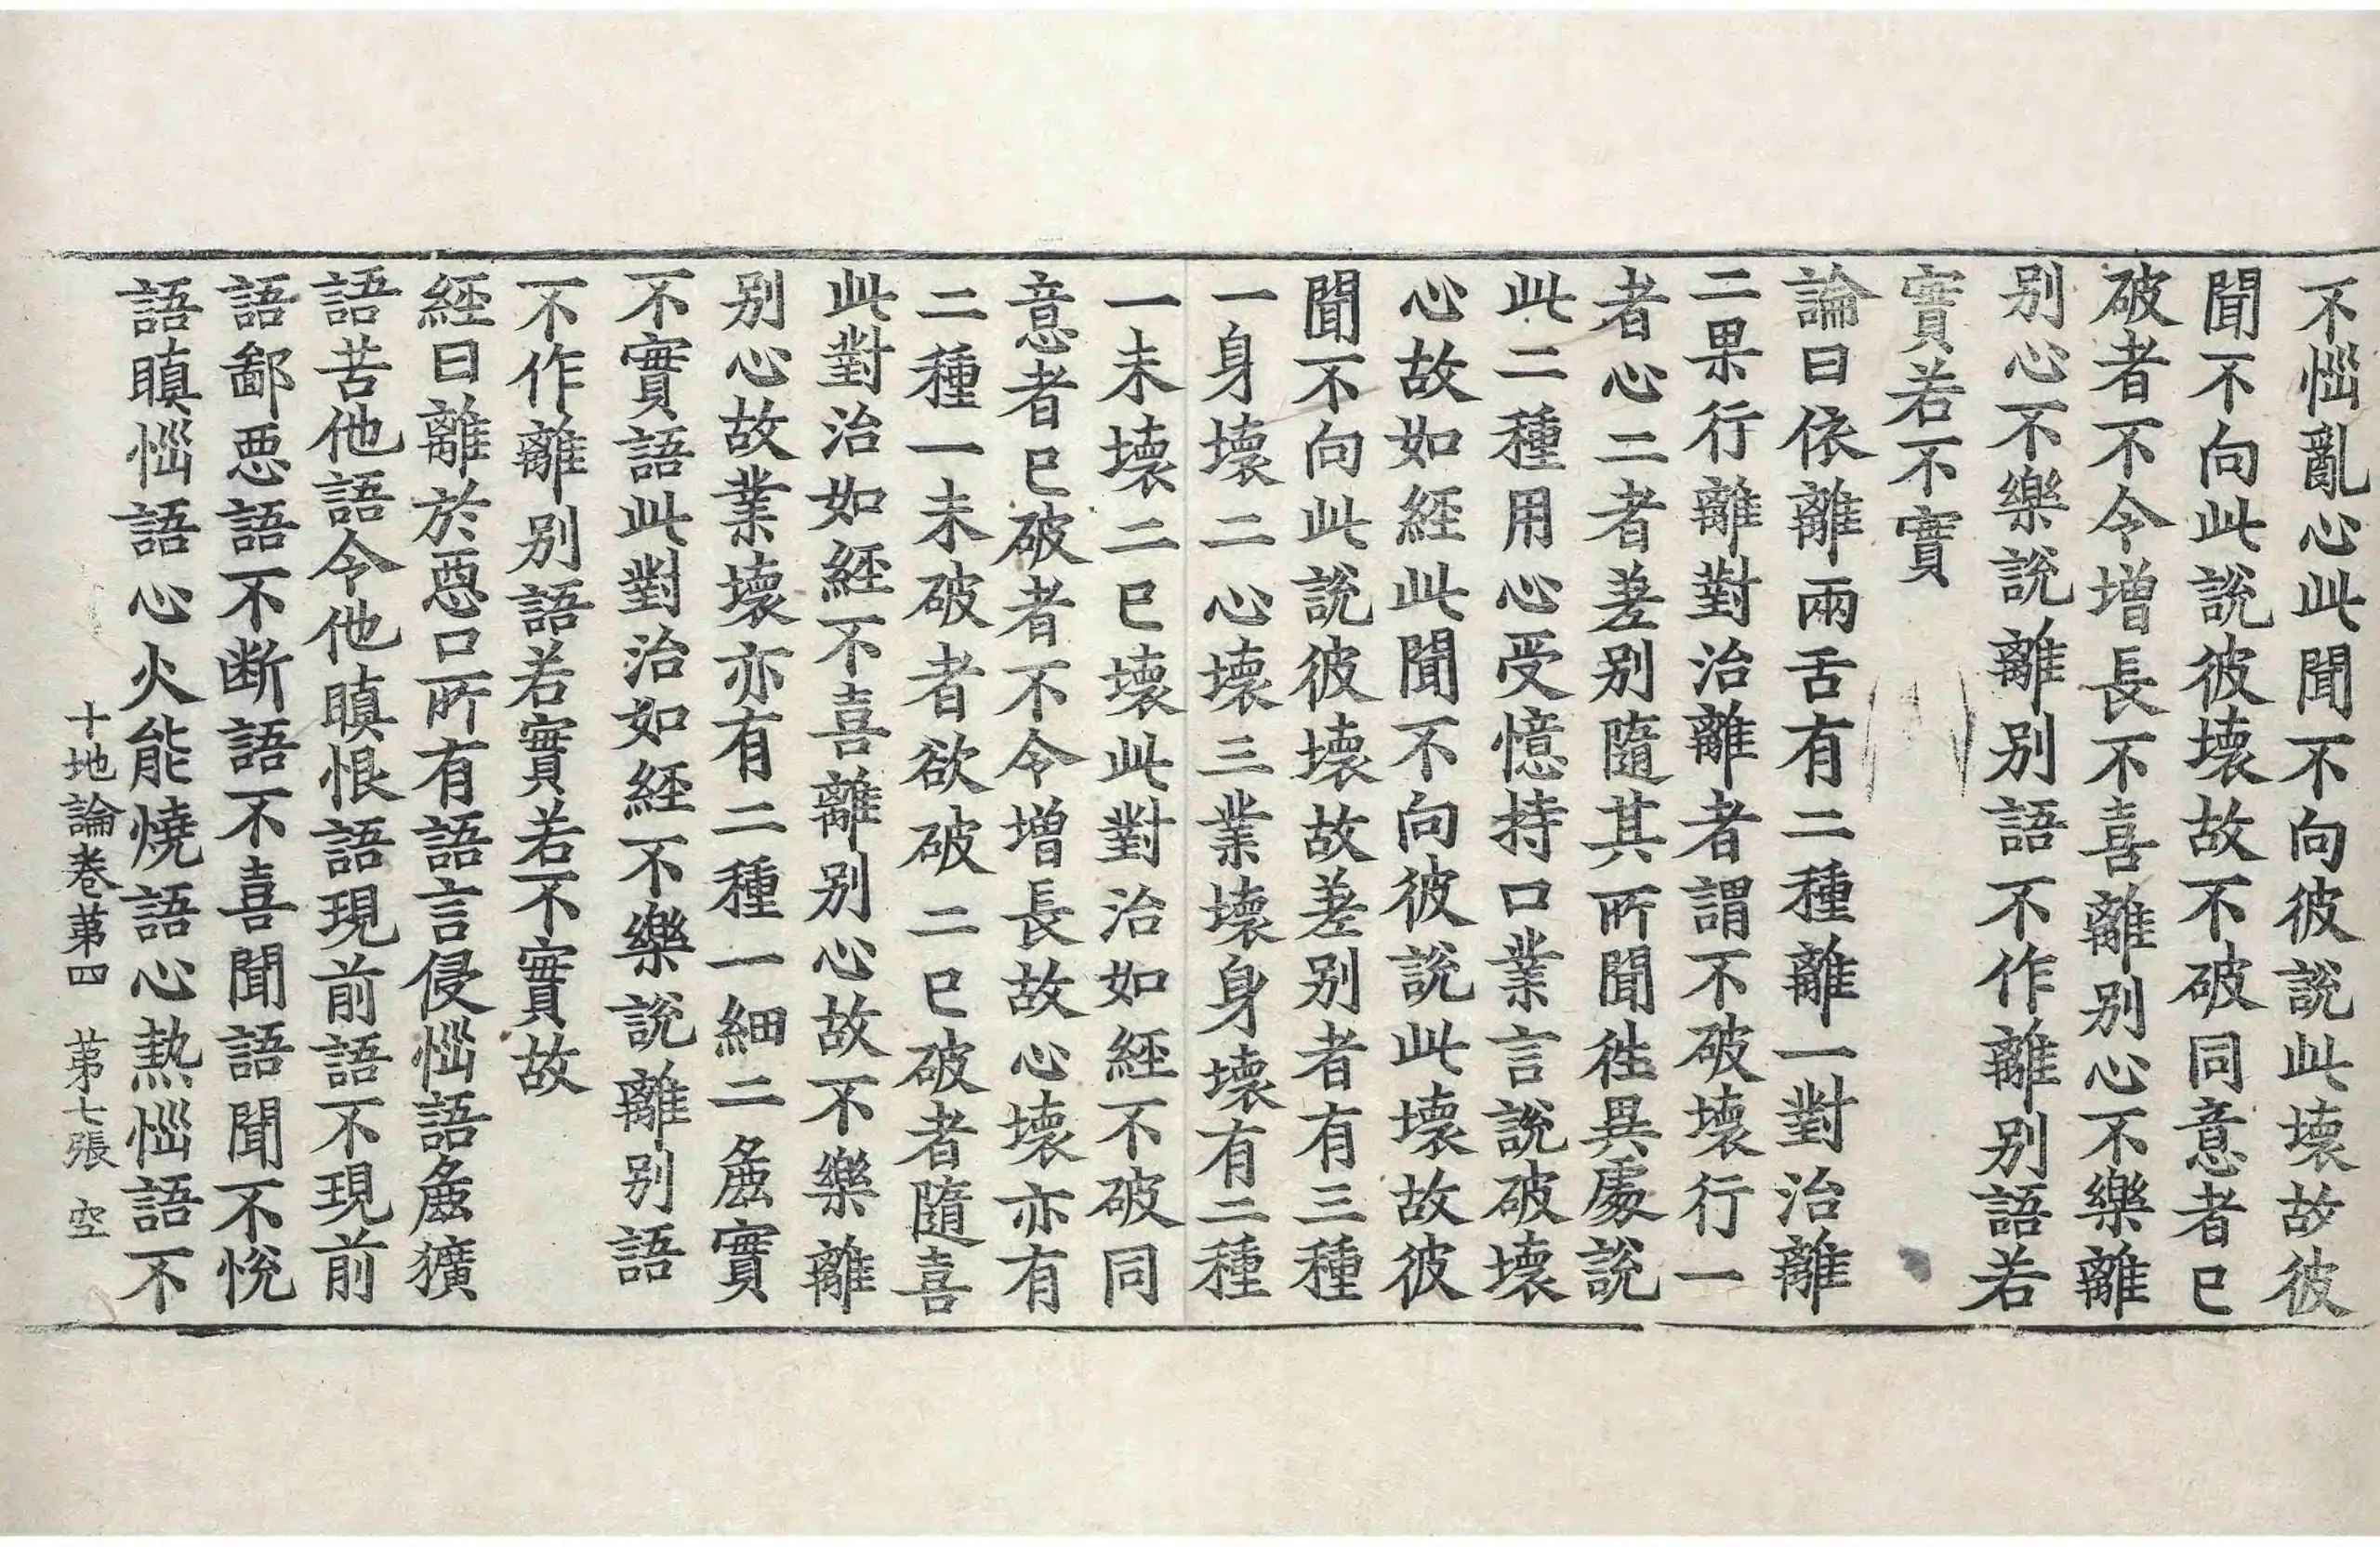 不惱亂心此聞不向彼說此壞故彼
聞不向此說彼壞故不破同意者已
破者不令增長不喜離別心不樂離
别心不樂說離别語不作離别語若
實若不實
論曰依離兩舌有二種離一對治離
二果行離對治離者謂不破壞行一
者心二者差别隨其所聞徃異處說
此二種用心受憶持口業言說破壞
心故如經此聞不向彼說此壞故彼
聞不向此說彼壞故差别者有三種
一身壞二心壞三業壞身壞有二種
一未壞二已壞此對治如經不破同
意者已破者不令增長故心壞亦有
二種一未破者欲破二已破者隨喜
此對治如經不喜離别心故不樂離
别心故業壞亦有二種一細二麁實
不實語此對治如經不樂說離别語
不作離别語若實若不實故
經曰離於惡口所有語言侵惱語麁獷
語苦他語令他瞋恨語現前語不現前
語鄙惡語不断語不喜聞語聞不悅
語瞋惱語心火能燒語心熱惱語不
十地論卷苐四 苐七張 空